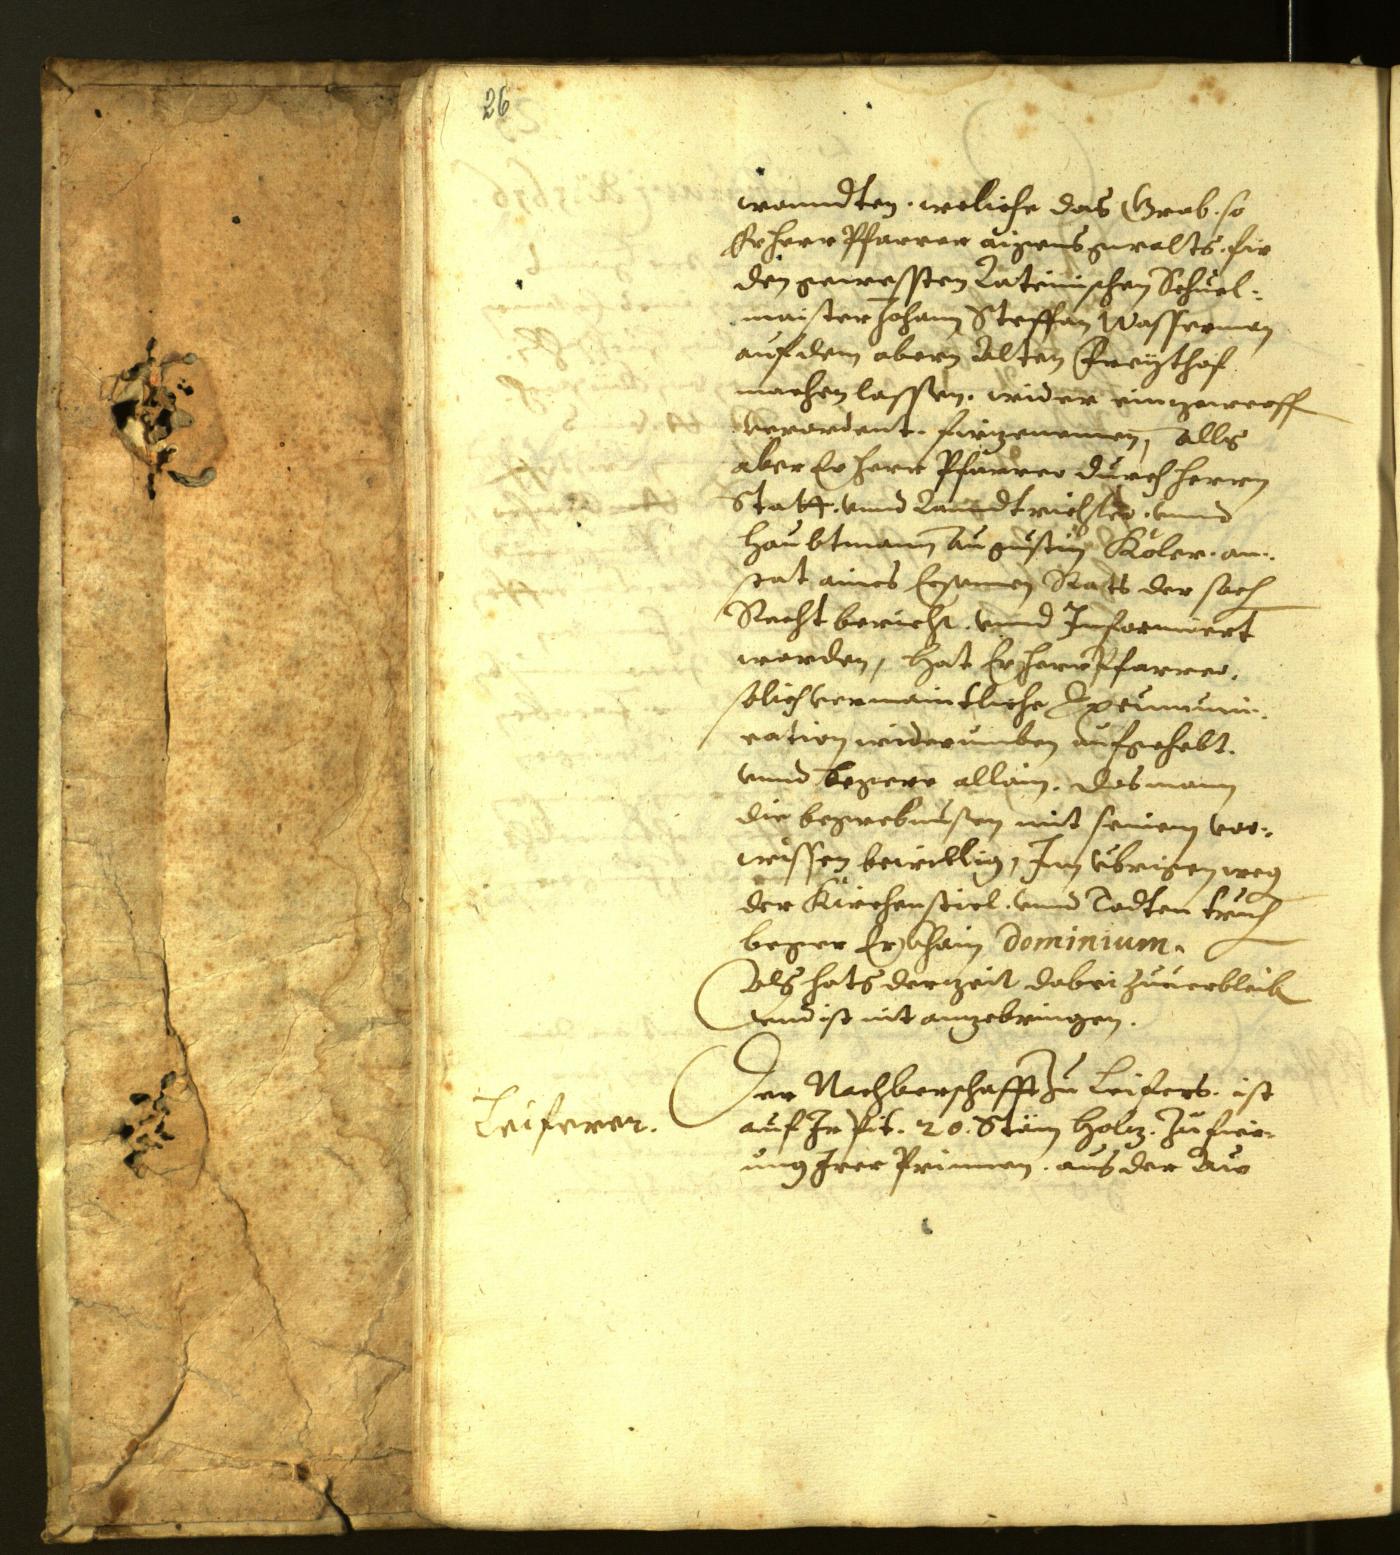 26
wanndten. weliche das Grab. so
Er herr Pfarrer aigens gwalts. fir
den gewessten Lateinischen Schuel-
maister Johann Steffan Wasserman
auf dem obern Alten Freythof
machen lassen. wider einzewerff
verordent. firgenomen, Alls
aber Er herr Pfarrer durch herrn
Statt. vnnd Lanndtrichter. vnnd
Haubtmann Augustin Köler. an-
stat aines Ersamen Rats der sach
Recht bericht. vnnd Informiert
worden, Hat Er herr Pfarrer.
solich vermaintliche Excumuni-
cation widerumben aufgehebt.
vnnd begere allain. das mann
die begrebnussen mit seinem vor-
wissen bewillig, Im vbrigen weg
der Kirchenstiel. vnnd Todten truch
beger Er khain Dominium.
Als hats derzeit dabei zuuerbleib
vnd ist nit anzebringen.
Leiferer.
Der Nachberschafft zu Leifers. ist
auf Ir pit. 20. Stäm Holz. zu fier-
ung Irer Prinnen. aus der Aw